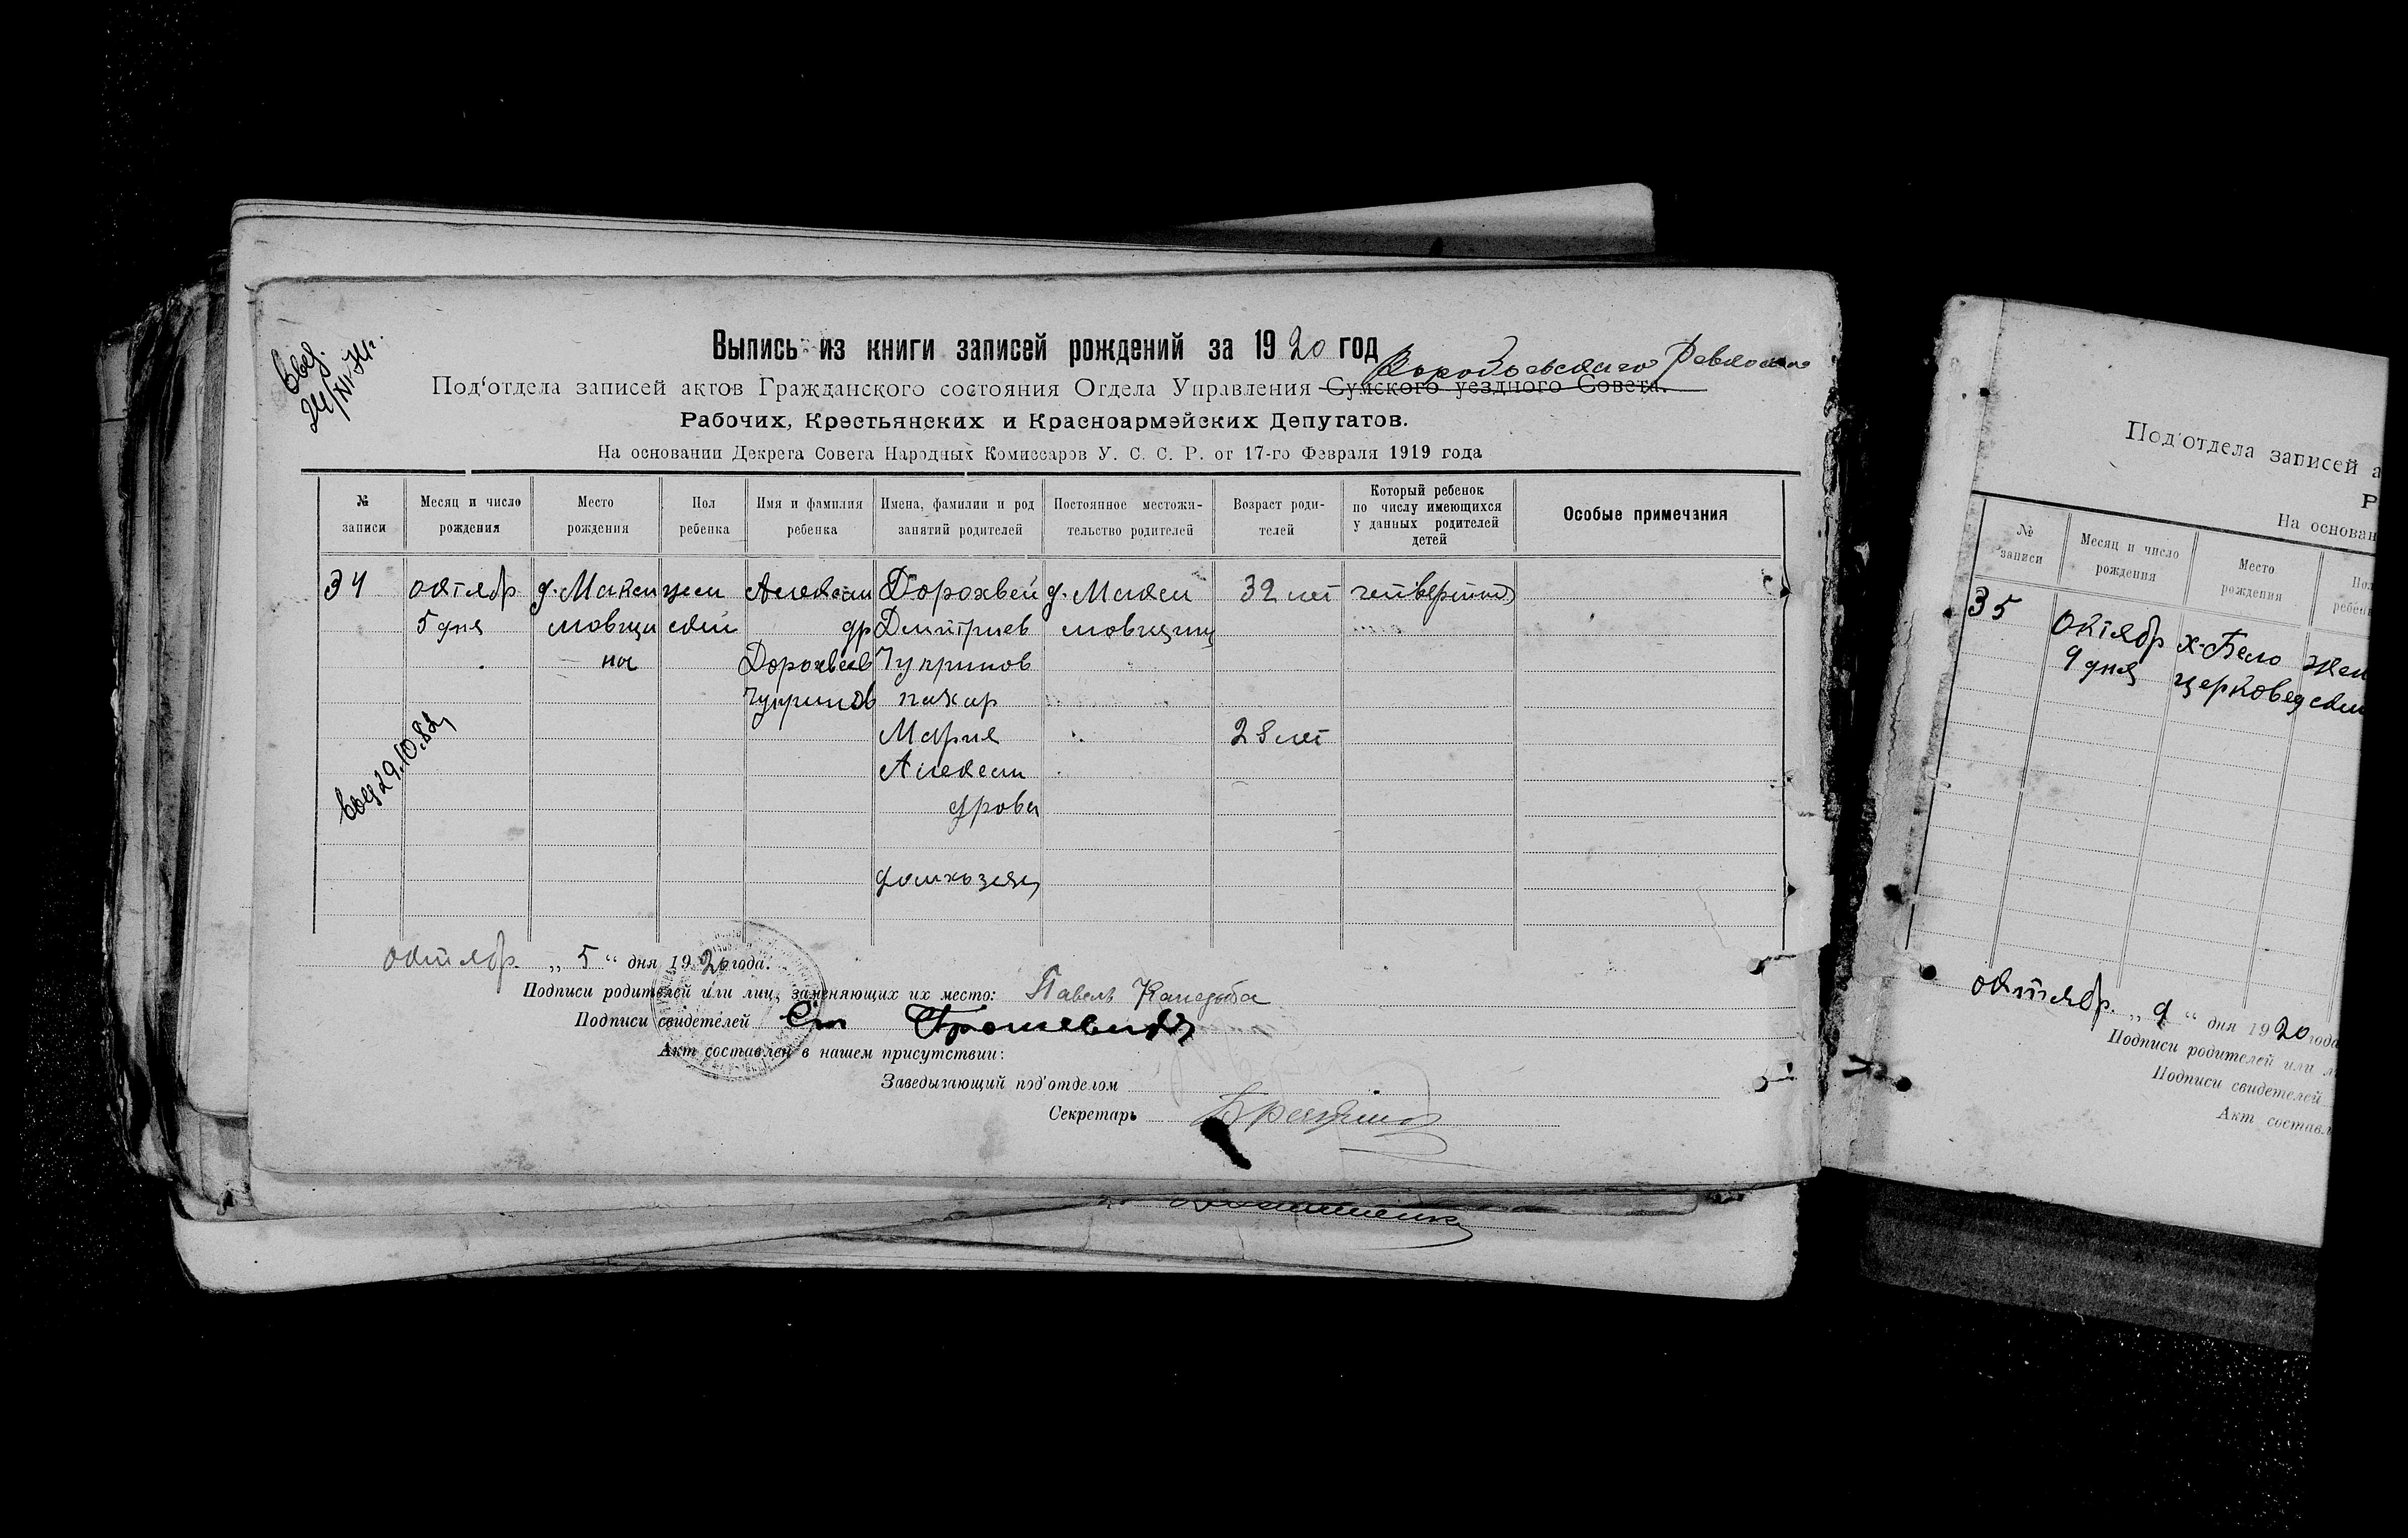 Выд.
24/XI 74г.
Выпись из книги записей рождений за 1920 год
Ревкома
Под'отдела записей актов Гражданского состояния Отдела Управления Сумского уездного Совета.
Рабочих, Крестьянских и Красноармейских Депутатов.
На основании Декрета Совета Народных Комиссаров У. С. С. Р. от 17-го Февраля 1919 года
№ записи
Месяц и число рождения
Место рождения
Пол ребенка
Имя и фамилия ребенка
Имена, фамилии и род занятий родителей
Постоянное местожительство родителей
Возраст родителей
Который ребенок по числу имеющихся у данных родителей детей
Особые примечания
34 октябр д. Макси жен Алексан Дорохвей д. Макси 32 лет четвертый
5 дня мовщи ский др Дмитриев мовщину
на Дорохвеев Чупринов
Чупринов пахар
Мария 28 лет
Александрова
домхозяй
выд 29.10.82
октябр. „5“ дня 1920 года.
Подписи родителей или лиц, заменяющих их место: Павель
Подписи свидетелей
Акт составлен в нашем присутствии:
Заведывающий под'отделом
Секретарь
Под'отдела записей а
Р
На основан
№ записи
Месяц и число рождения
Место рождения
Пол ребенк
35 октябр х. Бело жен
9 дня церковед ский
октябр. „9“ дня 1920 года
Подписи родителей или л
Подписи свидетелей
Акт составл